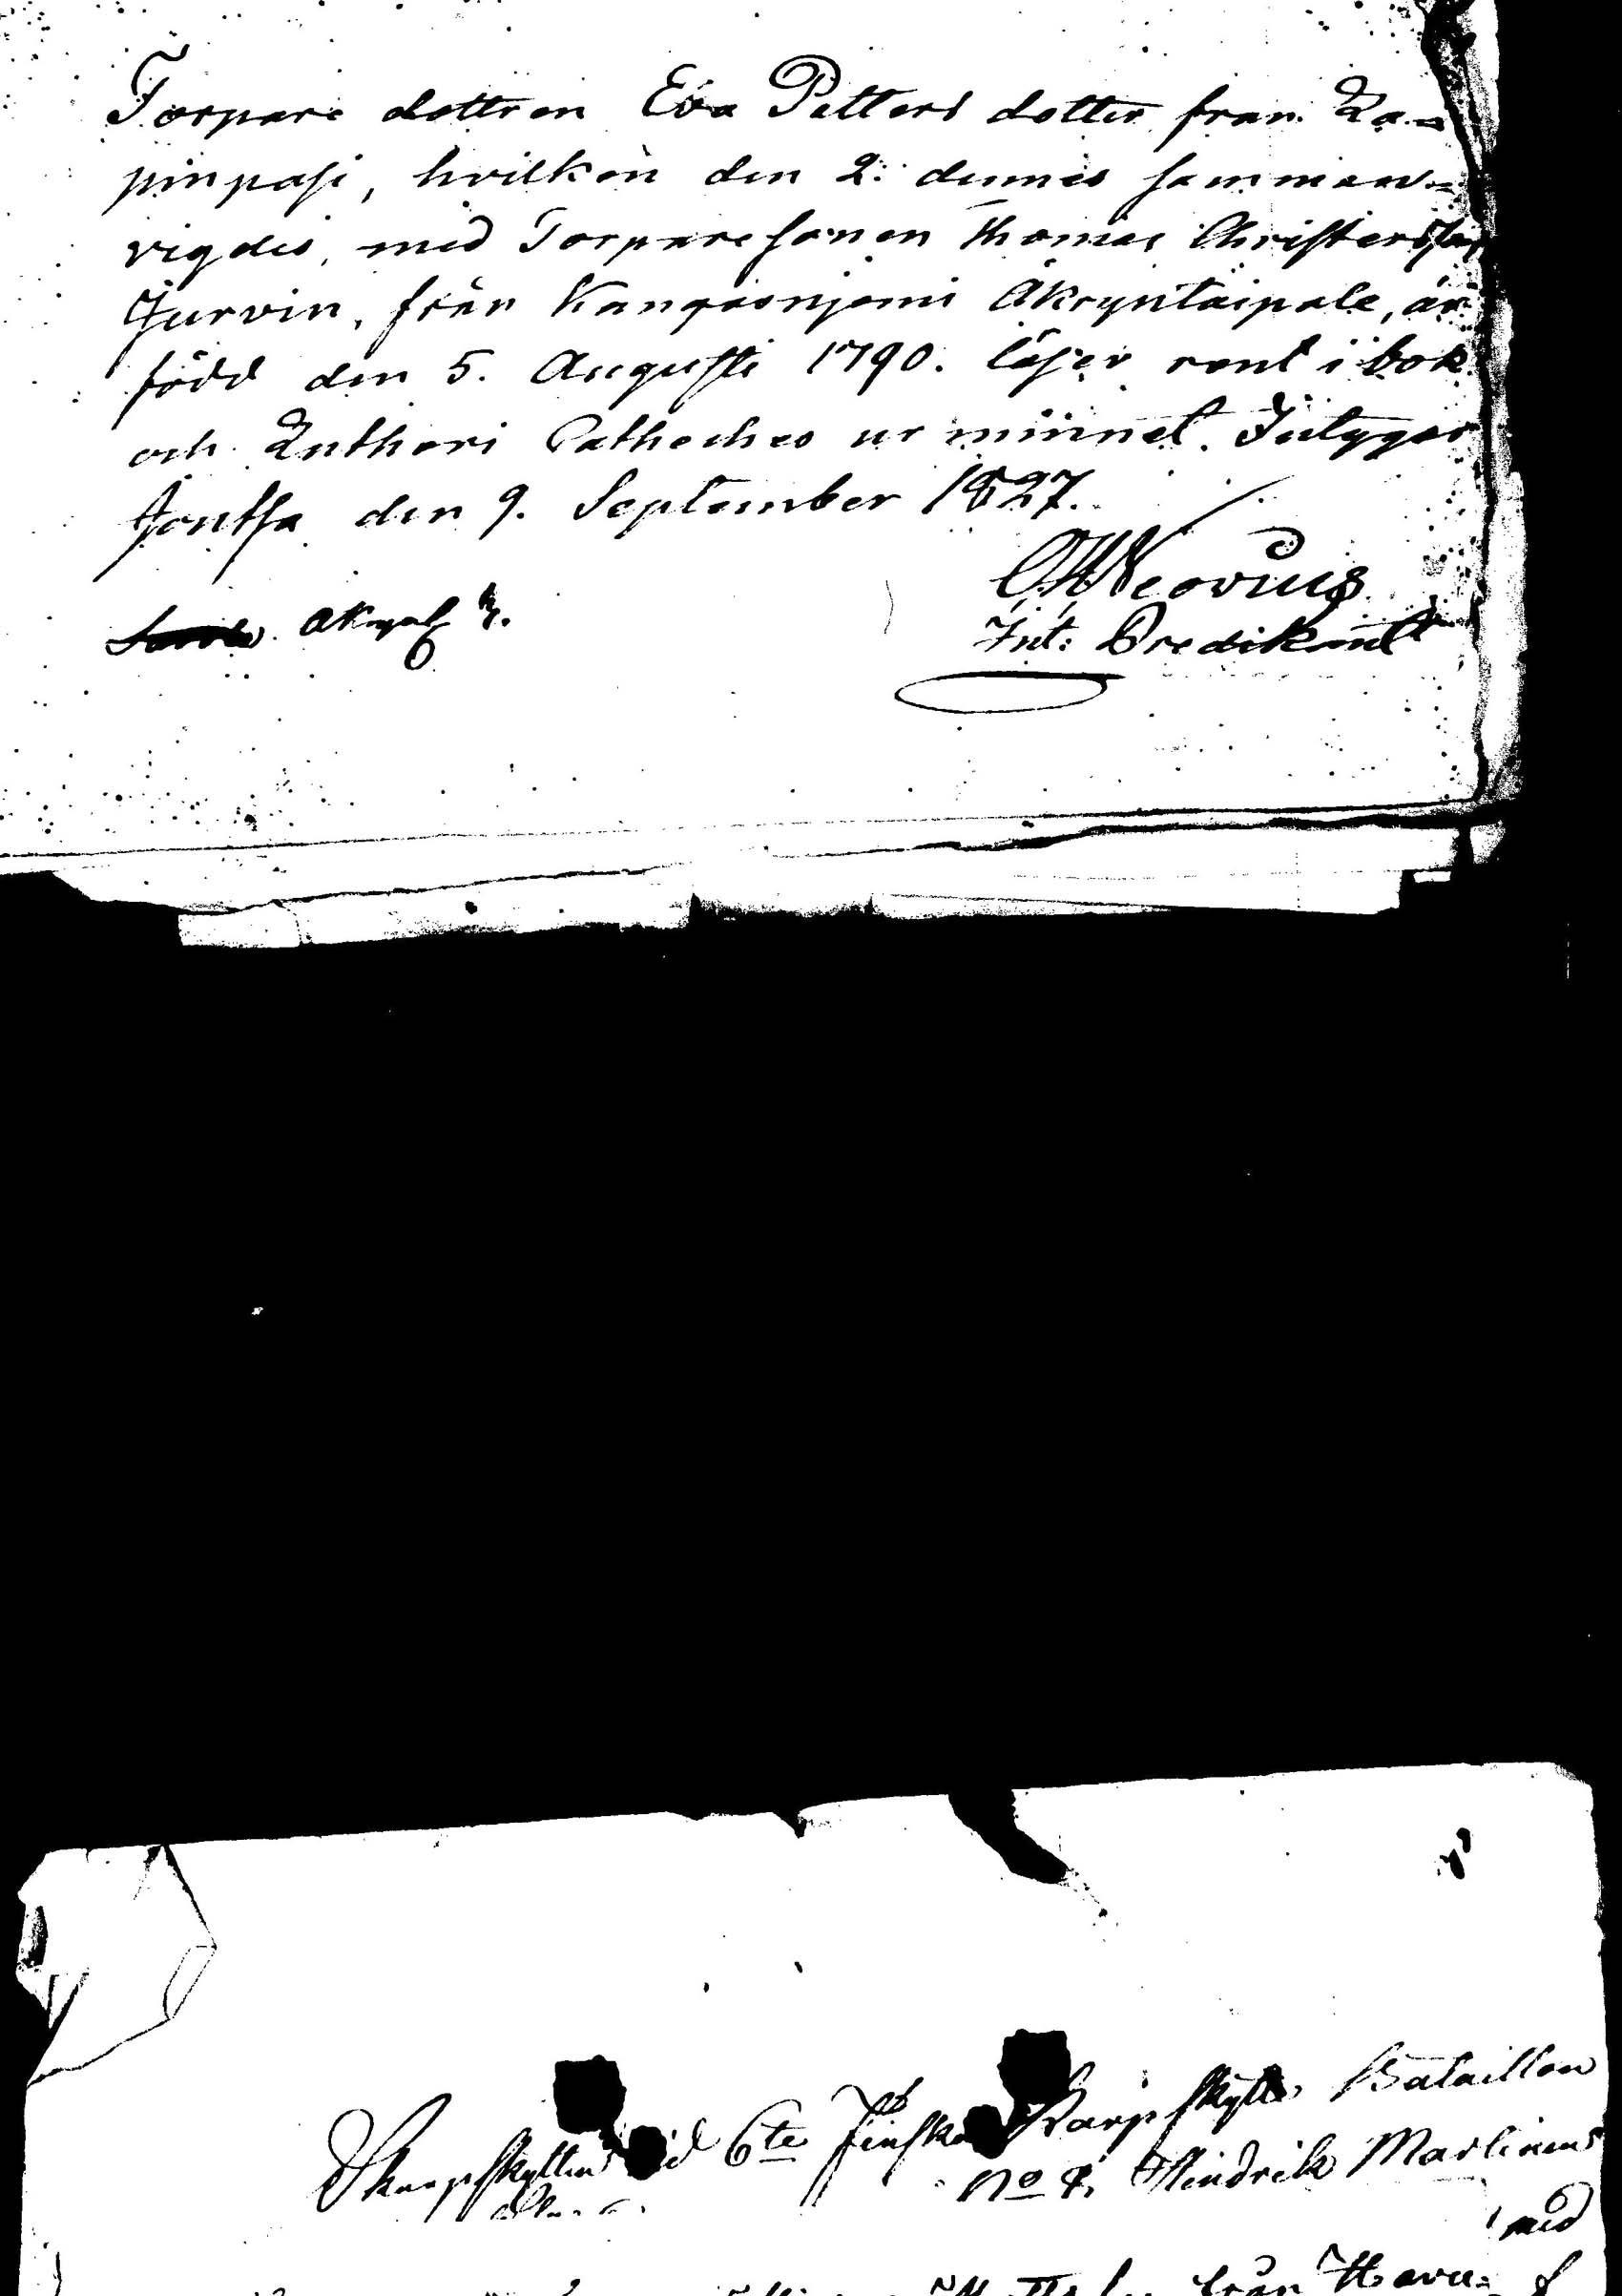 Torpare dottren Eva Petters dotter från La=
pinpasi, hvilken den 2. dennes samman=
vigdes, med Torparesonen Thomas Christersson
Jurvin, från Kangasnjemi Äkryntaipale, är
född den 5. Augusti 1790. läser rent i bok
och Lutheri Catheches ur minnet. Intygar
Joutsa den 9. September 1827.
OHNeovius
Int: Predikant
Skarpskytten 6te Finska Skarpskytte Bataillon
No Hindrik Martinens
med
från